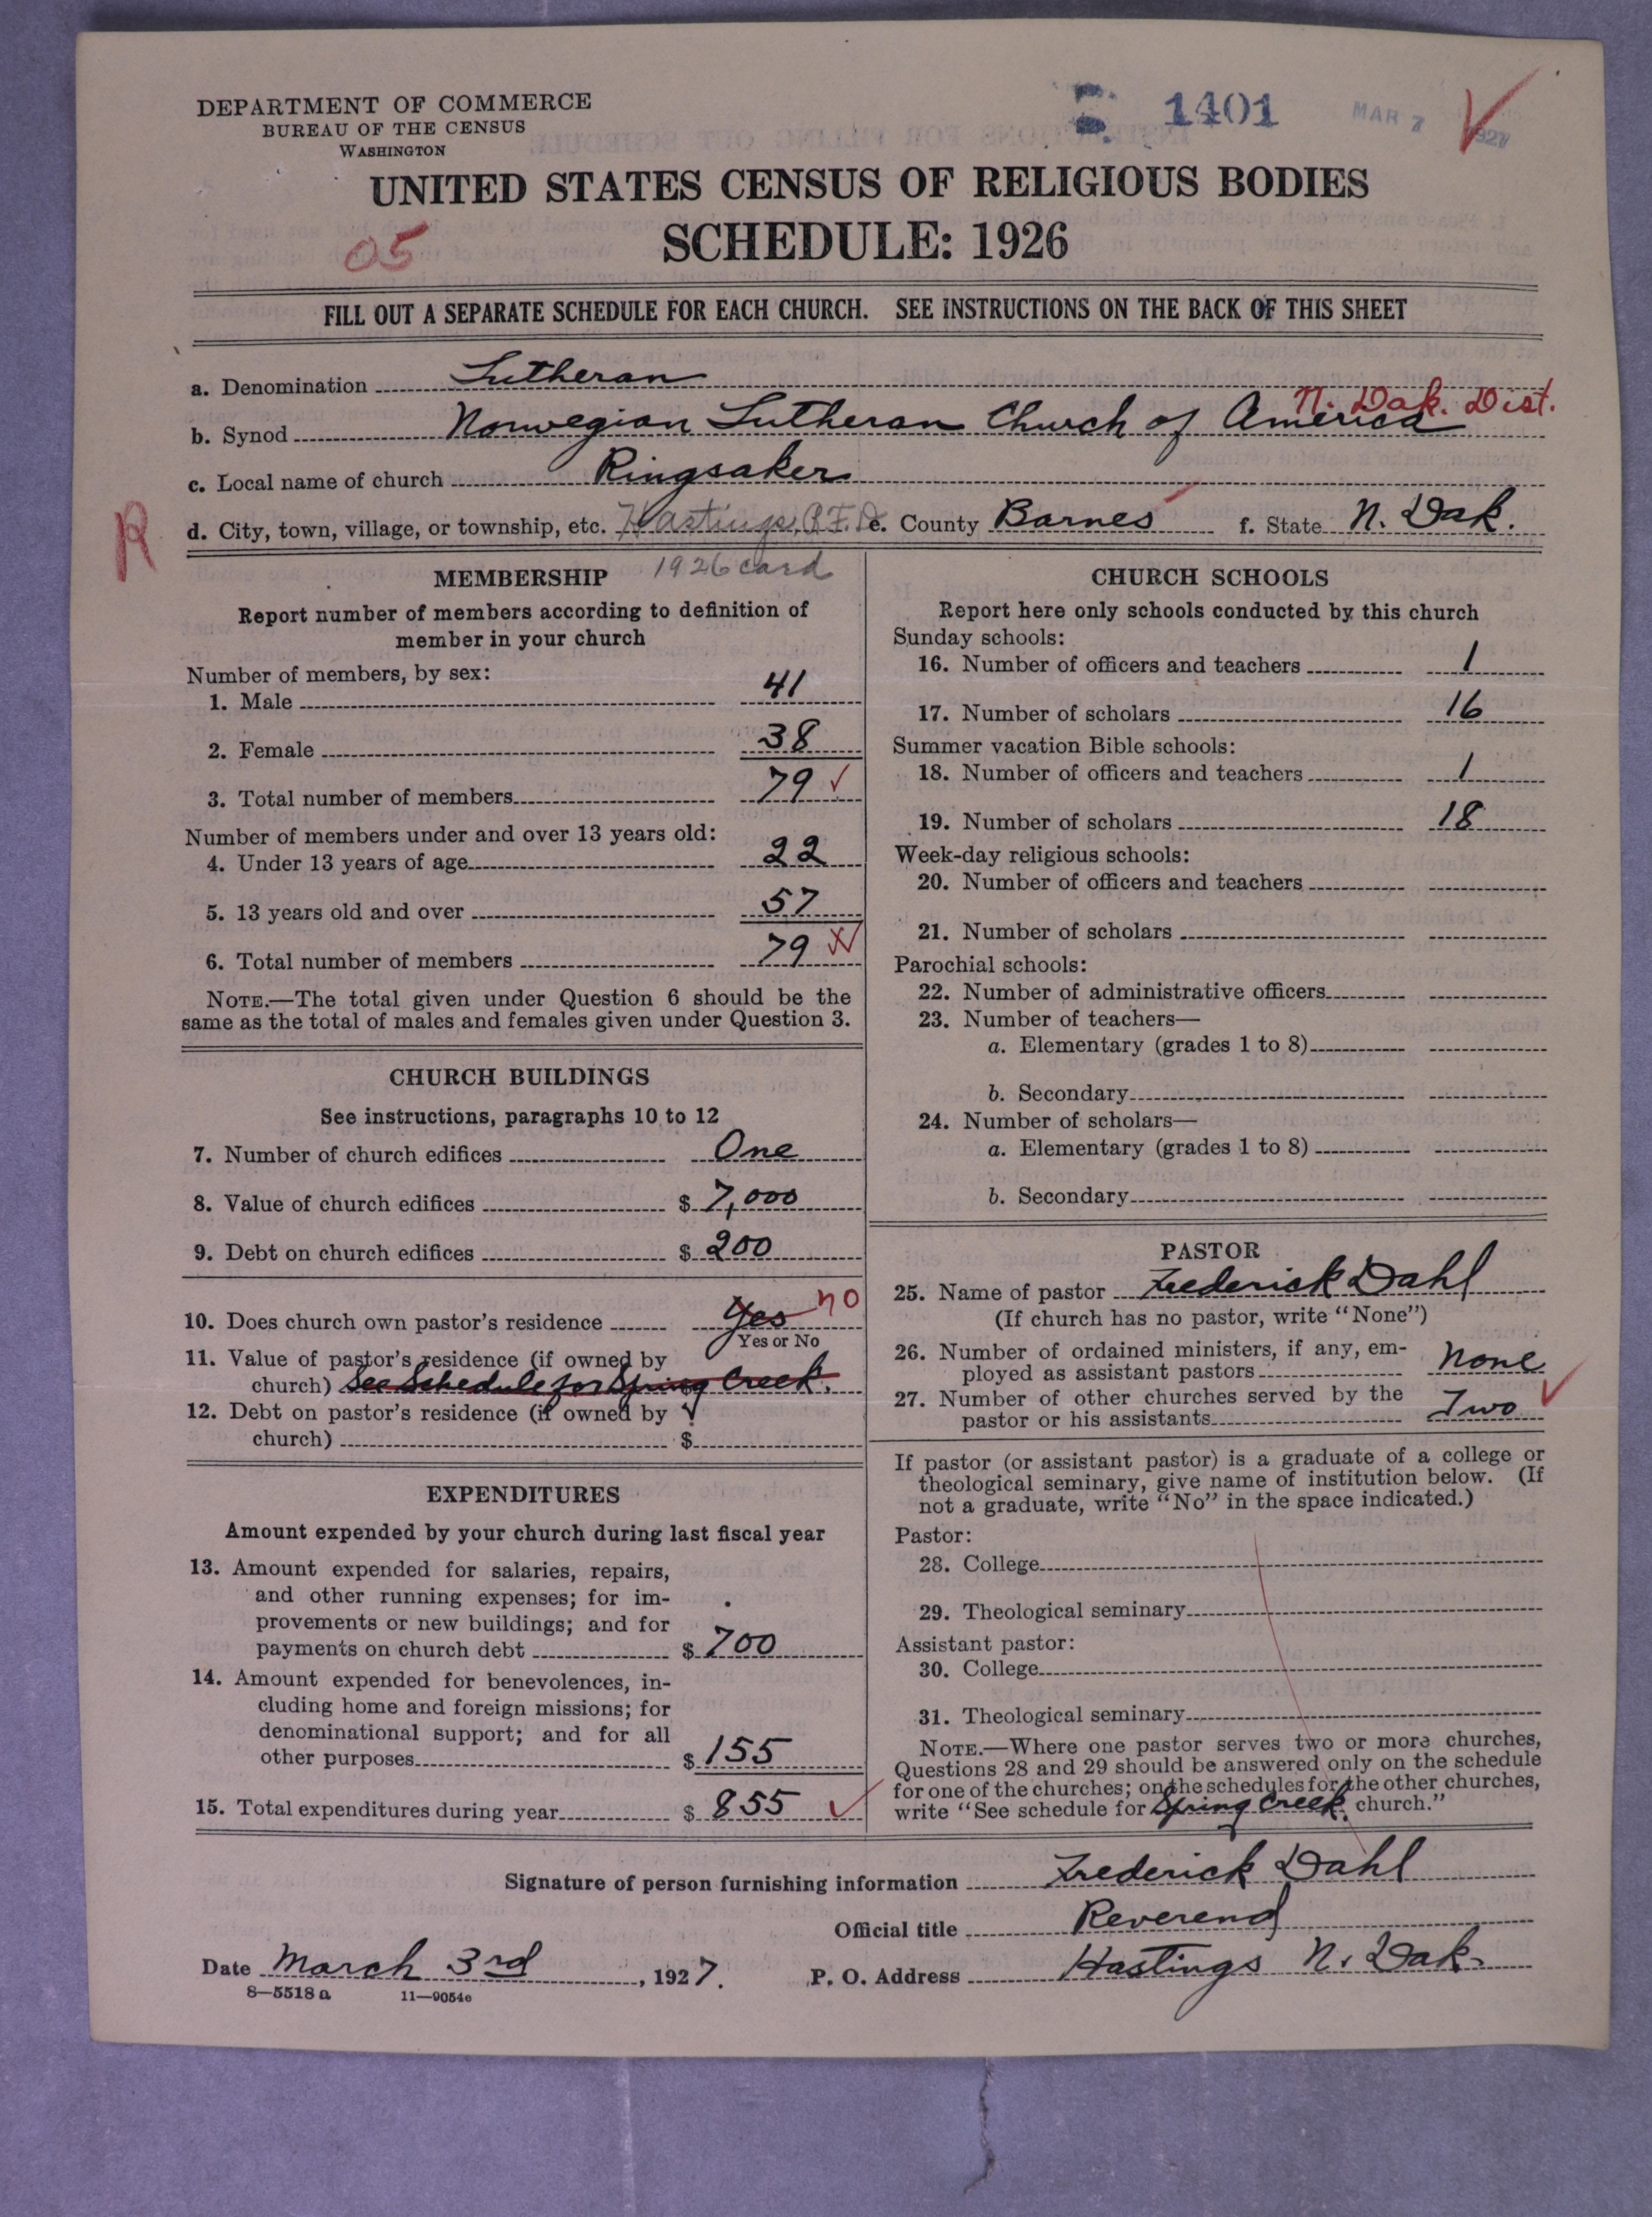 DEPARTMENT OF COMMERCE
BUREAU OF THE CENSUS
WASHINGTON
1401
MAR 7 1927
UNITED STATES CENSUS OF RELIGIOUS BODIES
05
SCHEDULE: 1926
FILL OUT A SEPARATE SCHEDULE FOR EACH CHURCH. SEE INSTRUCTIONS ON THE BACK OF THIS SHEET
a. Denomination Lutheran
N. Dak. Dist.
b. Synod Norwegian Lutheran Church of America
c. Local name of church Ringsaker
R
d. City, town, village, or township, etc. Hastings, R.F.D. e. County Barnes f. State N. Dak.
1926 card
MEMBERSHIP
Report number of members according to definition of
member in your church
Number of members, by sex:
1. Male 41
2. Female 38
3. Total number of members 79
Number of members under and over 13 years old:
4. Under 13 years of age 22
5. 13 years old and over 57
6. Total number of members 79
NOTE.—The total given under Question 6 should be the
same as the total of males and females given under Question 3.
CHURCH BUILDINGS
See instructions, paragraphs 10 to 12
7. Number of church edifices One
8. Value of church edifices $ 7,000
9. Debt on church edifices $ 200
10. Does church own pastor's residence Yes no
Yes or No
11. Value of pastor's residence (if owned by
church) See Schedule for Spring Creek.
12. Debt on pastor's residence (if owned by
church) $
EXPENDITURES
Amount expended by your church during last fiscal year
13. Amount expended for salaries, repairs,
and other running expenses; for im-
provements or new buildings; and for
payments on church debt $ 700
14. Amount expended for benevolences, in-
cluding home and foreign missions; for
denominational support; and for all
other purposes $ 155
15. Total expenditures during year $ 855
CHURCH SCHOOLS
Report here only schools conducted by this church
Sunday schools:
16. Number of officers and teachers 1
17. Number of scholars 16
Summer vacation Bible schools:
18. Number of officers and teachers 1
19. Number of scholars 18
Week-day religious schools:
20. Number of officers and teachers
21. Number of scholars
Parochial schools:
22. Number of administrative officers
23. Number of teachers—
a. Elementary (grades 1 to 8)
b. Secondary
24. Number of scholars—
a. Elementary (grades 1 to 8)
b. Secondary
PASTOR
25. Name of pastor Frederick Dahl
(If church has no pastor, write "None")
26. Number of ordained ministers, if any, em-
ployed as assistant pastors None
27. Number of other churches served by the
pastor or his assistants Two
If pastor (or assistant pastor) is a graduate of a college or
theological seminary, give name of institution below. (If
not a graduate, write "No" in the space indicated.)
Pastor:
28. College
29. Theological seminary
Assistant pastor:
30. College
31. Theological seminary
NOTE.—Where one pastor serves two or more churches,
Questions 28 and 29 should be answered only on the schedule
for one of the churches; on the schedules for the other churches,
write "See schedule for Spring Creek church."
Signature of person furnishing information Frederick Dahl
Official title Reverend
Date March 3rd, 1927. P. O. Address Hastings N. Dak.
8—5518 a 11—9054e